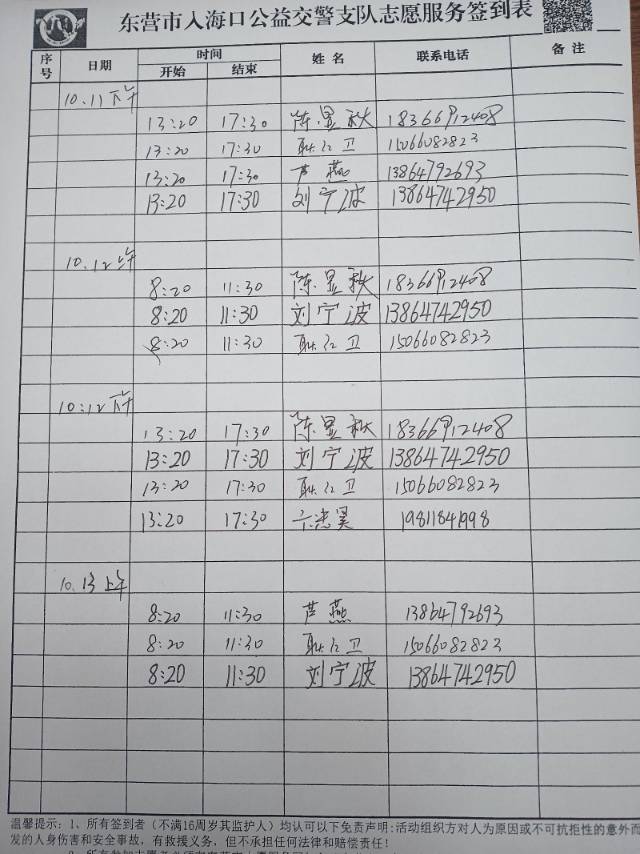 东营市入海口公益交警支队志愿服务签到表
序号 日期 时间 姓名 联系电话 备注
开始 结束
10.11下午
13:20 17:30 陈显秋 18366912408
13:20 17:30 耿红卫 15066082823
13:20 17:30 芦燕 13864792693
13:20 17:30 刘宁波 13864742950
10.12上午
8:20 11:30 陈显秋 18366912408
8:20 11:30 刘宁波 13864742950
8:20 11:30 耿红卫 15066082823
10:12下午
13:20 17:30 陈显秋 18366912408
13:20 17:30 刘宁波 13864742950
13:20 17:30 耿红卫 15066082823
13:20 17:30 19811841998
10.13上午
8:20 11:30 芦燕 13864792693
8:20 11:30 耿红卫 15066082823
8:20 11:30 刘宁波 13864742950
温馨提示：1、所有签到者（不满16周岁其监护人）均认可以下免责声明:活动组织方对人为原因或不可抗拒性的意外而
发的人身伤害和安全事故，有救援义务，但不承担任何法律和赔偿责任！